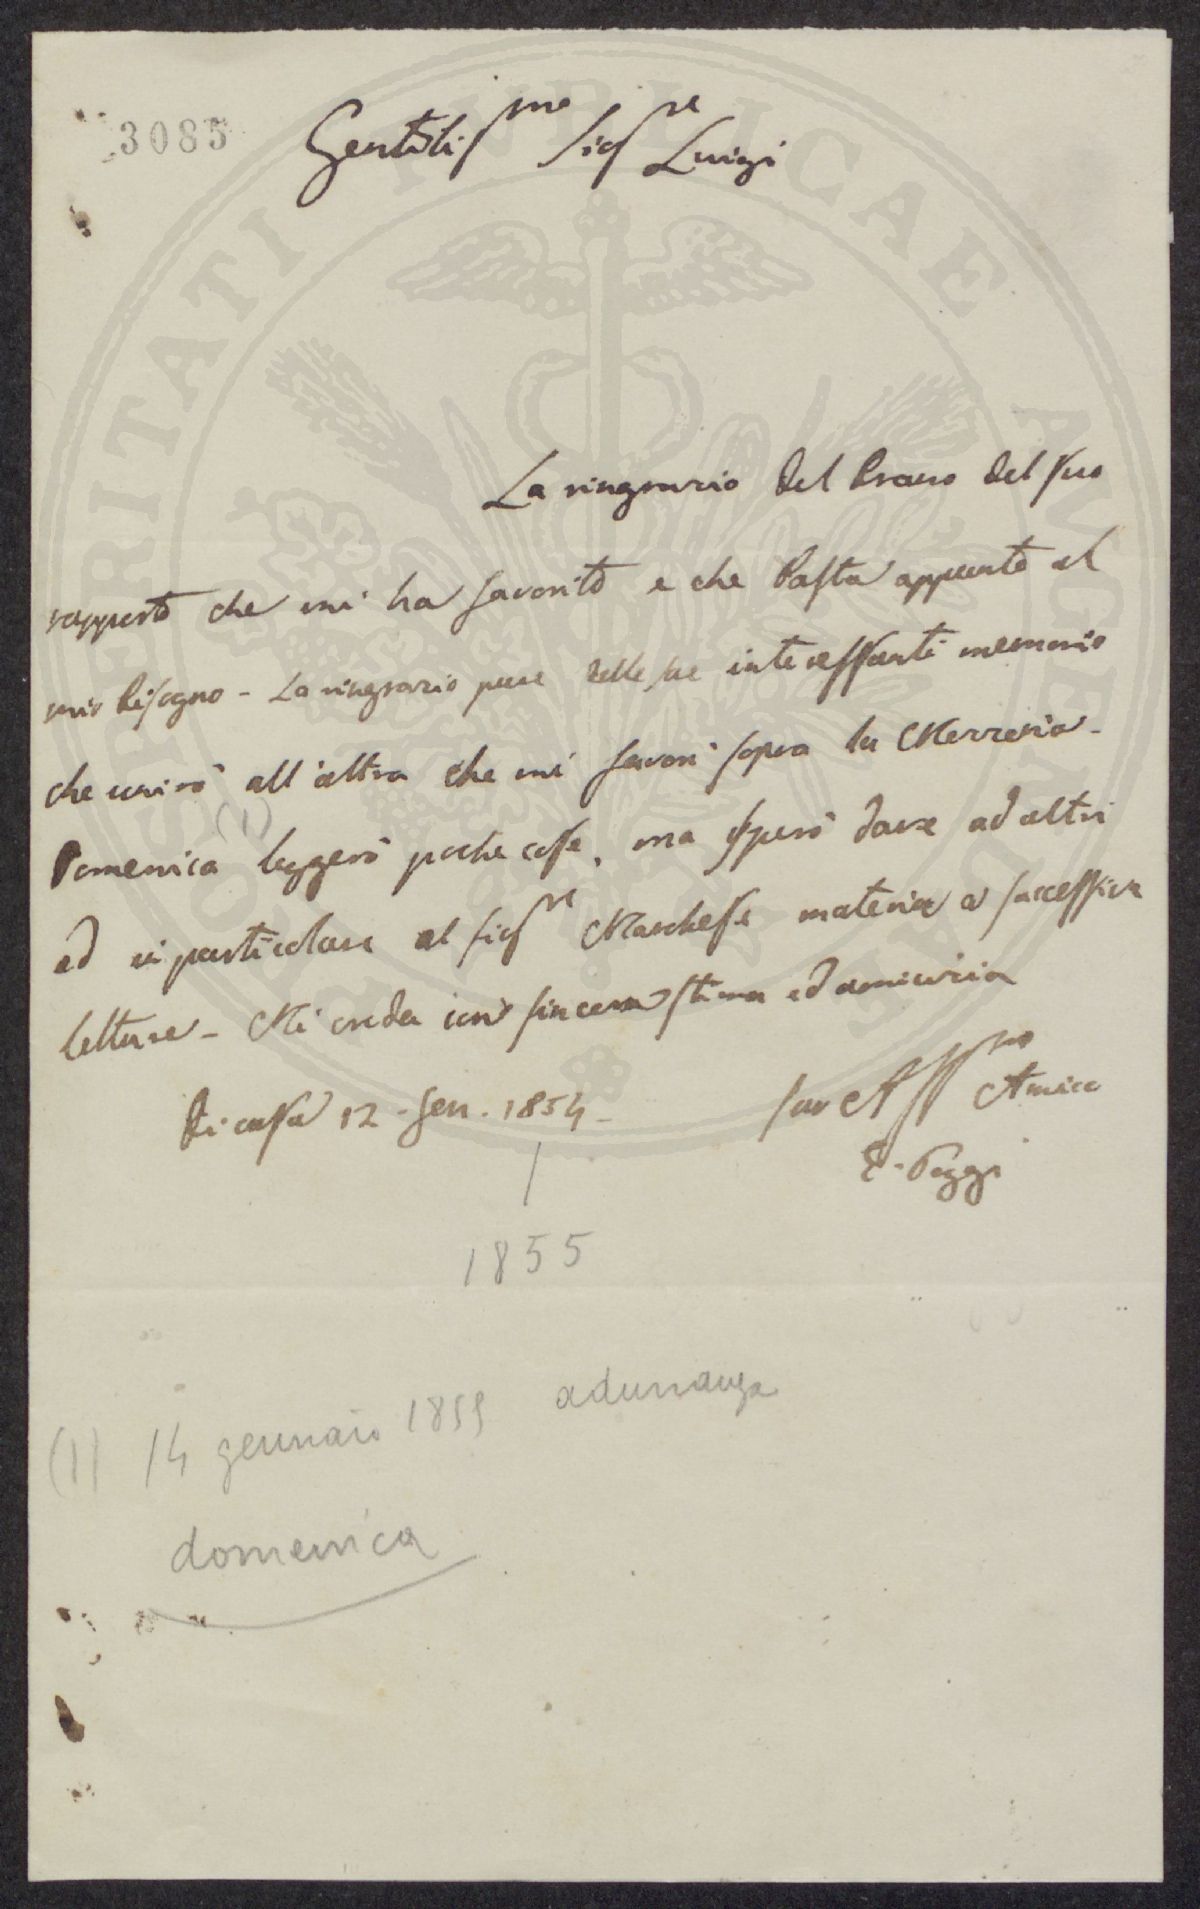 3085
Gentiliss.mo Sig.re Luigi
La ringrazio del brano del suo
rapporto che mi ha favorito e che basta appunto al
mio bisogno - La ringrazio pure delle sue interessanti memorie
che unirò all'altra che mi favorì sopra la Mezzeria -
(1)
Domenica leggerò poche cose, ma spero dare ad altri
ed in particolare al Sig.re Marchese materia a successive
letture - Mi creda con sincera stima ed amicizia
Di casa 12 - Gen. 1854 -
Suo Aff.mo Amico
E. Poggi
1855
(1) 14 gennaio 1855 adunanza
domenica
PROSPERITATI PUBLICAE AUGENDAE